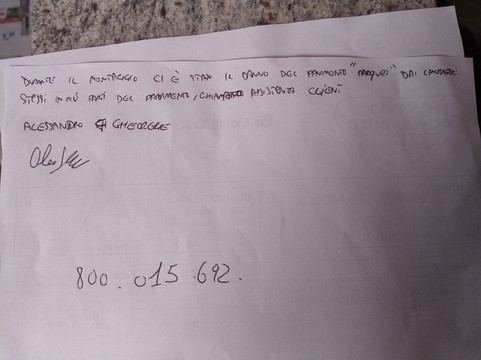 DURANTE IL MONTAGGIO CI È STATO IL DANNO DEL PAVIMENTO "PARQUET" DAI
STESSI IN PIÙ PARTI DEL PAVIMENTO, CHIAMATO ASSISTENZA CLIENTI
ALESSANDRO GHEORGHE
800.015.692.